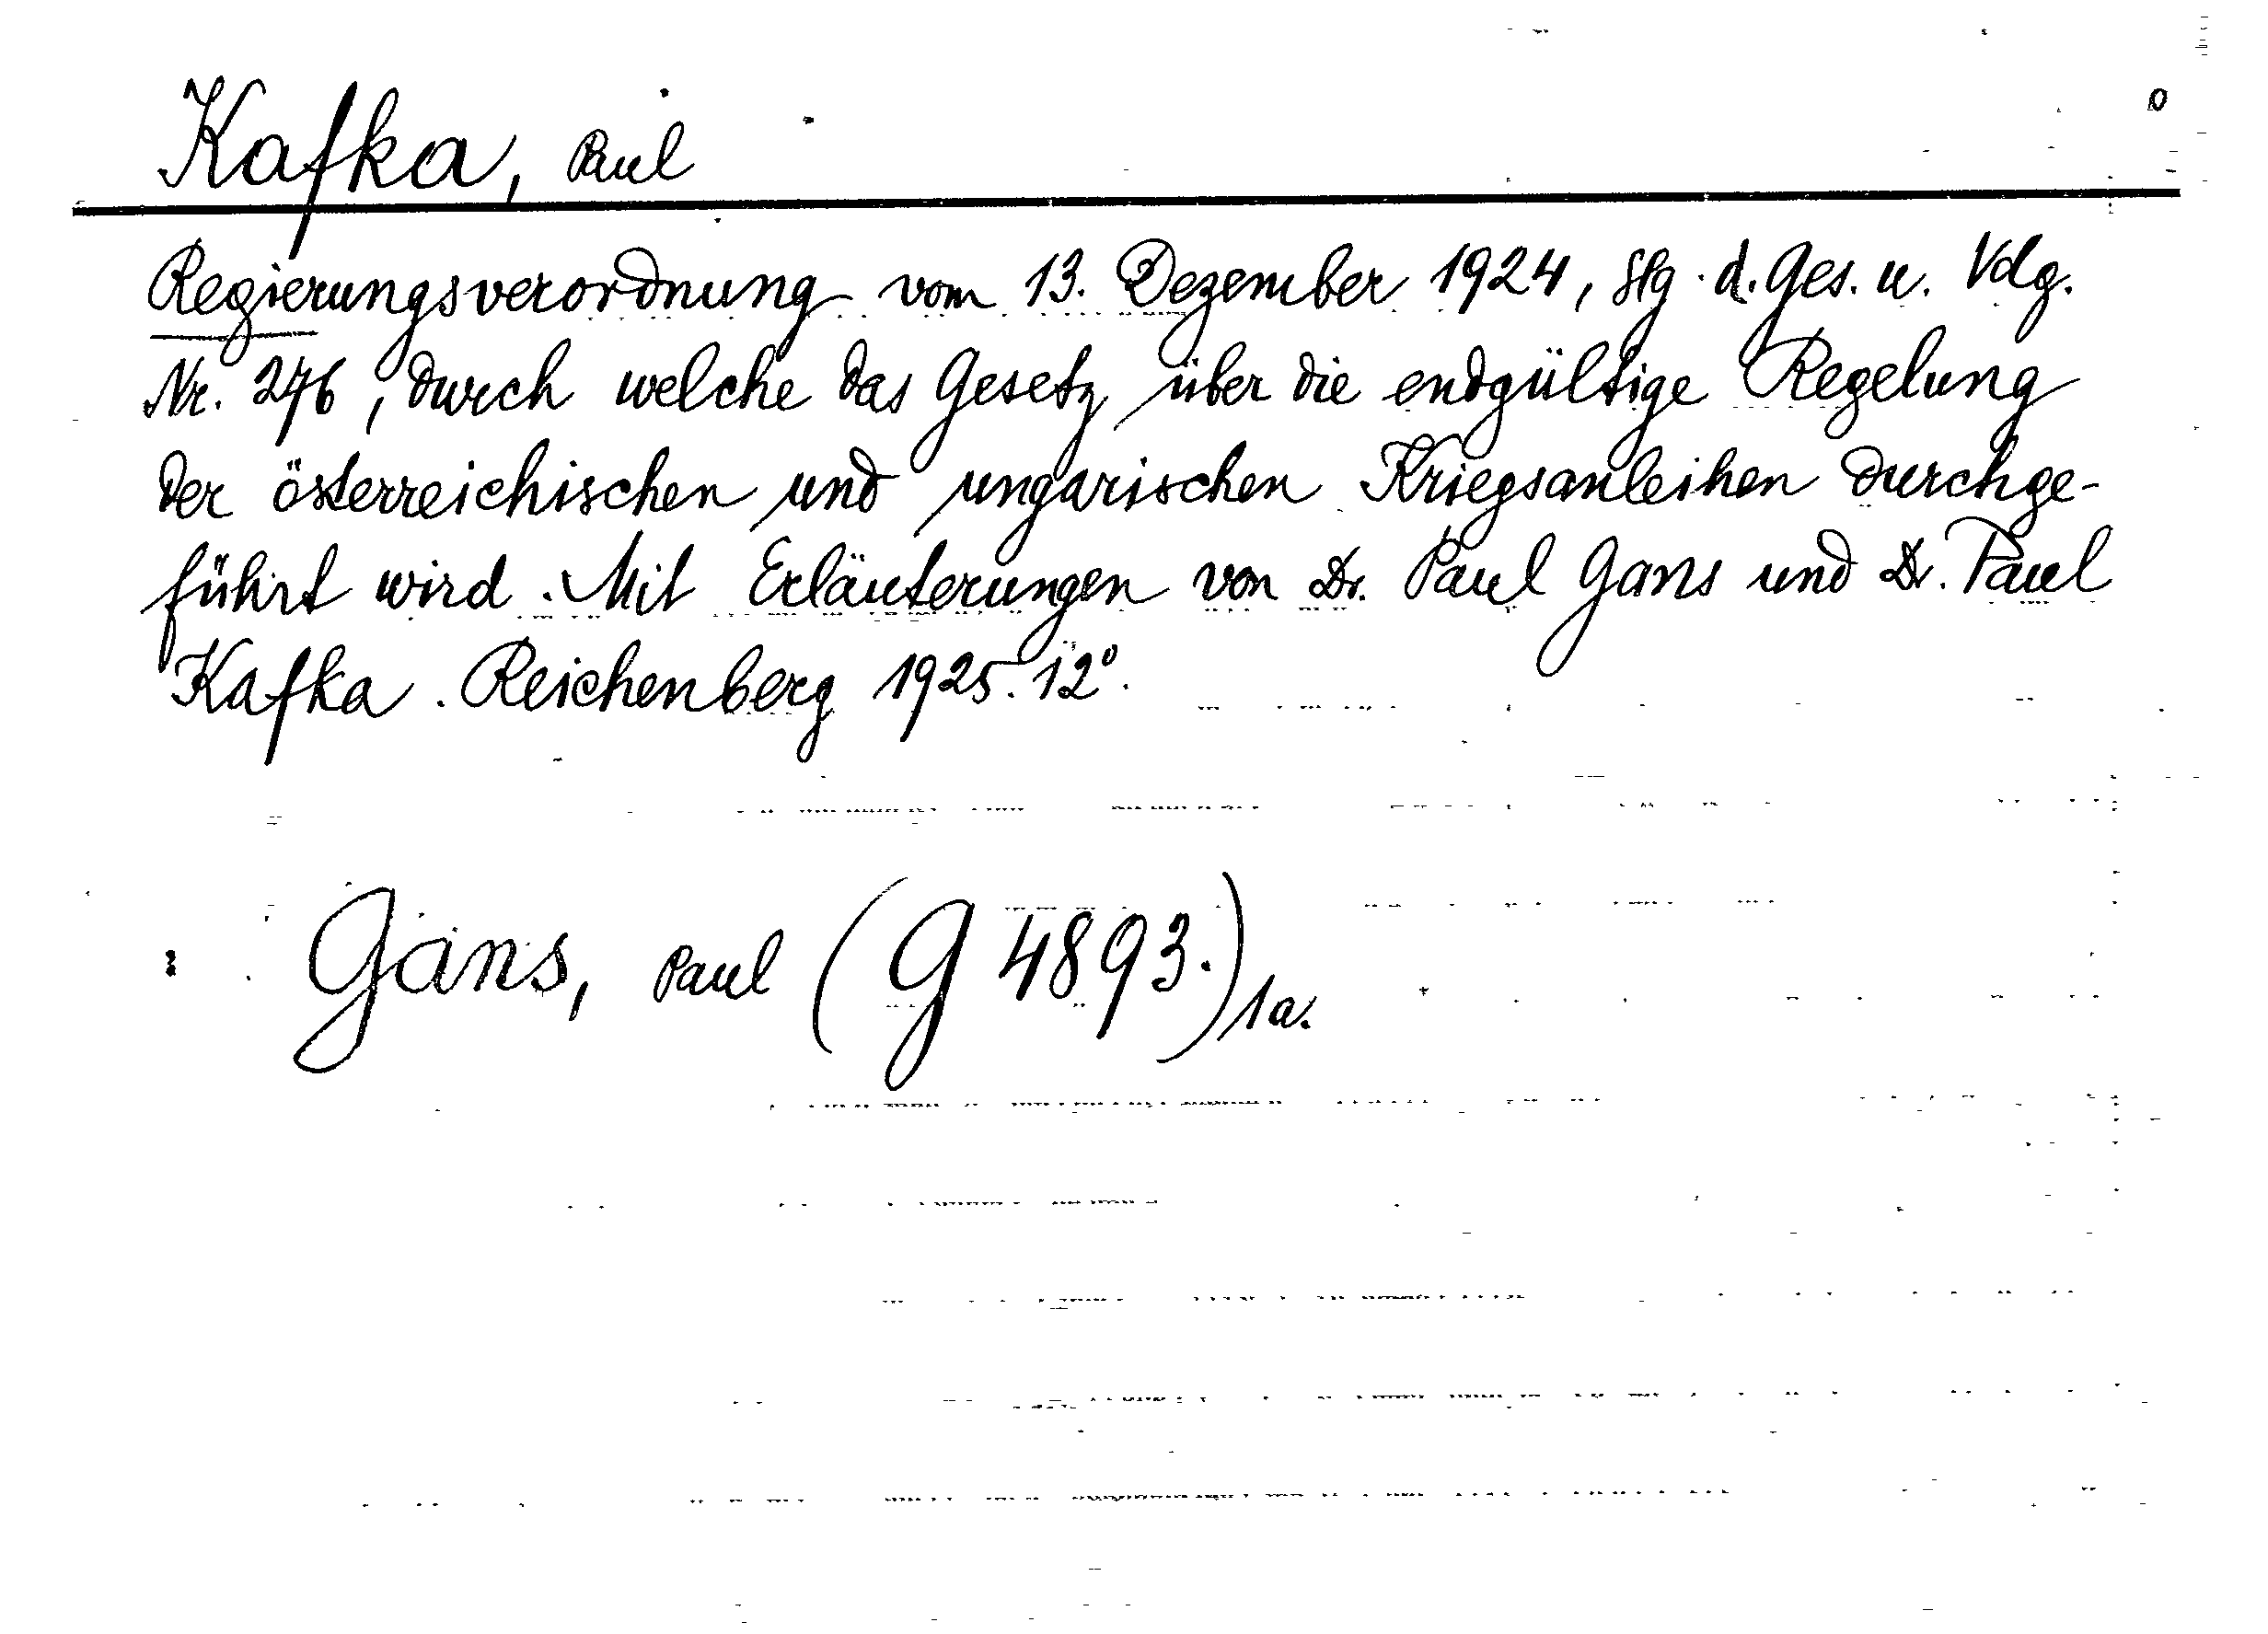 Kafka, Paul
Regierungsverordnung vom 13. Dezember 1924, Slg. d. Ges. u. Vdg.
Nr. 276, durch welche das Gesetz über die endgültige Regelung
der österreichischen und ungarischen Kriegsanleihen durchge-
führt wird. Mit Erläuterungen von Dr. Paul Gans und Dr. Paul
Kafka. Reichenberg 1925. 12°.
Gans, Paul (G 4893.) 1a.